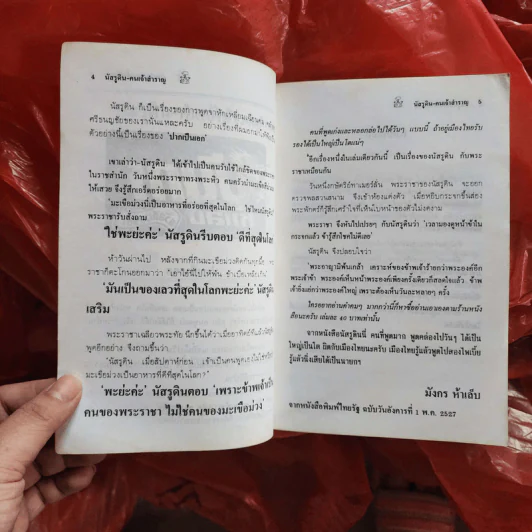 4 นัสรูดิน-คนเจ้าสำราญ
นัสรูดิน ก็เป็นเรื่องของการพูดจาหักเหลี่ยมเฉือนคม
ศรีธนญชัยของเรานั่นแหละครับ อย่างเรื่องที่ผมยกมา
ตัวอย่างนี้เป็นเรื่องของ 'ปากเป็นเอก'
เขาเล่าว่า-นัสรูดิน ได้เข้าไปเป็นคนรับใช้ใกล้ชิดของพระ
ราชาในสำนัก วันหนึ่งพระราชาทรงพระหิว คนครัวนำมะเขือม่วง
ให้เสวย จึงรู้สึกเอร็ดอร่อยมาก
'มะเขือม่วงนี่เป็นอาหารที่อร่อยที่สุดในโลก ใช่ไหมนัสรูดิน'
พระราชารับสั่งถาม
'ใช่พะย่ะค่ะ' นัสรูดินรีบตอบ 'ดีที่สุดในโลก
ห้าวันผ่านไป หลังจากที่กินมะเขือม่วงติดกันทุกมื้อ
ราชาก็ตะโกนออกมาว่า 'เอาไอ้นี่ไปให้พ้น ข้าเบื่อเหลือเกิน'
'มันเป็นของเลวที่สุดในโลกพะย่ะค่ะ' นัสรูดิน
เสริม
พระราชาเฉลียวพระทัย นึกขึ้นได้ว่าเมื่ออาทิตย์ก่อน
พูดอีกอย่าง จึงถามขึ้นว่า
'นัสรูดิน เมื่อสัปดาห์ก่อน เจ้าเป็นคนพูดเองไม่ใช่หรือว่า
มะเขือม่วงเป็นอาหารที่ดีที่สุดในโลก?'
'พะย่ะค่ะ' นัสรูดินตอบ 'เพราะข้าพเจ้าเป็น
คนของพระราชา ไม่ใช่คนของมะเขือม่วง'
นัสรูดิน-คนเจ้าสำราญ 5
คนที่พูดเก่งและหลอกล่อไปได้วันๆ แบบนี้ ถ้าอยู่เมืองไทยรับ
รองได้เป็นใหญ่เป็นโตแน่ๆ
'อีกเรื่องหนึ่งในเล่มเดียวกันนี้ เป็นเรื่องของนัสรูดิน กับพระ
ราชาเหมือนกัน
วันหนึ่งกษัตริย์ทาเมอร์ลัน พระราชาของนัสรูดิน จะออก
ตรวจพลสวนสนาม จึงเข้าห้องแต่งตัว เมื่อหยิบกระจกขึ้นส่อง
พระพักตร์ก็รู้สึกเศร้าใจที่เห็นใบหน้าของตัวไม่งดงาม
พระราชา จึงหันไปเปรยๆ กับนัสรูดินว่า 'เวลามองดูหน้าข้าใน
กระจกแล้ว ข้ารู้สึกโชคไม่ดีเลย'
นัสรูดิน จึงปลอบใจว่า
'พระอาญามิพ้นเกล้า เคราะห์ของข้าพเจ้าร้ายกว่าพระองค์อีก
พระเจ้าข้า พระองค์เห็นหน้าพระองค์เพียงครั้งเดียวก็สลดใจแล้ว ข้าพ
เจ้าซิยิ่งแย่กว่าพระองค์ใหญ่ เพราะต้องเห็นวันละหลายๆ ครั้ง
ใครอยากอ่านคำคมๆ มากกว่านี้ก็หาซื้ออ่านเอาเองตามร้านหนัง
สือนะครับ เล่มละ 40 บาทเท่านั้น
จากหนังสือนัสรูดินนี่ คนที่พูดมาก พูดคล่องไปวันๆ ได้เป็น
ใหญ่เป็นโต ผิดกับเมืองไทยนะครับ
มังกร ห้าเล็บ
จากหนังสือพิมพ์ไทยรัฐ ฉบับวันอังคารที่ 1 พ.ค. 2527